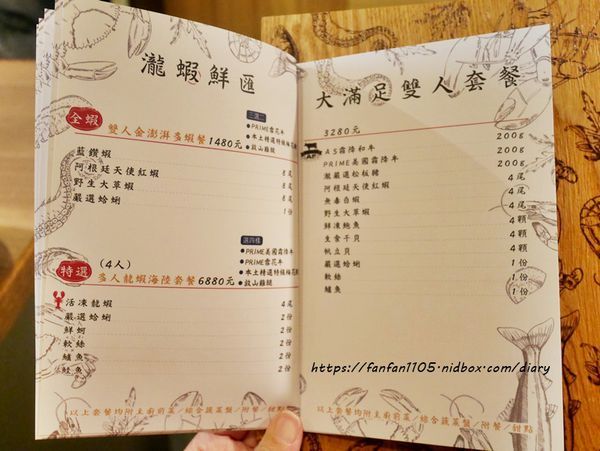 瀧蝦鮮匯
三選一
全蝦
雙人金澎湃多蝦餐1480元
●PRIME雪花牛
●本土精選特級梅花豬
●放山雞腿
藍鑽蝦 8尾
阿根廷天使紅蝦 8尾
野生大草蝦 8尾
嚴選蛤蜊 1份
選四樣
(4人)
特選
多人龍蝦海陸套餐6880元
●PRIME美國霜降牛
●PRIME雪花牛
●本土精選特級梅花豬
●放山雞腿
活凍龍蝦 4尾
嚴選蛤蜊 2份
鮮蚵 2份
軟絲 2份
鱸魚 2份
鮭魚 2份
以上套餐均附主廚前菜/綜合蔬菜盤/附餐/甜點
大滿足雙人套餐
3280元 200g
A5霜降和牛 200g
PRIME美國霜降牛 200g
瀧嚴選松板豬 4尾
阿根廷天使紅蝦 4尾
無毒白蝦 4尾
野生大草蝦 4顆
鮮凍鮑魚 4顆
生食干貝 4顆
帆立貝 1份
嚴選蛤蜊 1份
軟絲 1份
鱸魚
https://fanfan1105.nidbox.com/diary
以上套餐均附主廚前菜/綜合蔬菜盤/附餐/甜點